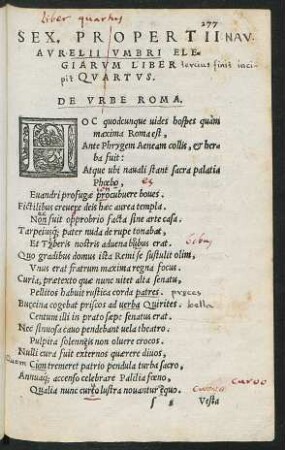 liber quartus
277
SEX. PROPERTII NAV.
AVRELII VMBRI ELE-
GIARVM LIBER tercius finit inci-
pit QVARTVS.
DE VRBE ROMA.
HOC quodcunque uides hospes quàm
maxima Roma est,
Ante Phrygem Aeneam collis, & her
ba fuit:
Atque ubi nauali stant sacra palatia
Phœbo, es
Euandri profugæ procubuere boues.
Fictilibus creuere deis hæc aurea templa.
Non fuit opprobrio facta sine arte casa.
Tarpeiusq; pater nuda de rupe tonabat,
Et Tyberis nostris aduena bubus erat.
Quo gradibus domus ista Remi se sustulit olim,
Vnus erat fratrum maxima regna focus.
Curia, prætexto quæ nunc nitet alta senatu,
Pellitos habuit rustica corda patres.
Buccina cogebat priscos ad uerba Quirites.
Centum illi in prato sæpe senatus erat.
Nec sinuosa cauo pendebant uela theatro:
Pulpita solennęis non oluere crocos.
Nulli cura fuit externos quærere diuos,
Cum tremeret patrio pendula turba sacro,
Annuaq; accenso celebrare Palilia fœno,
Qualia nunc curto lustra nouantur equo. curuo
f 5 Vesta